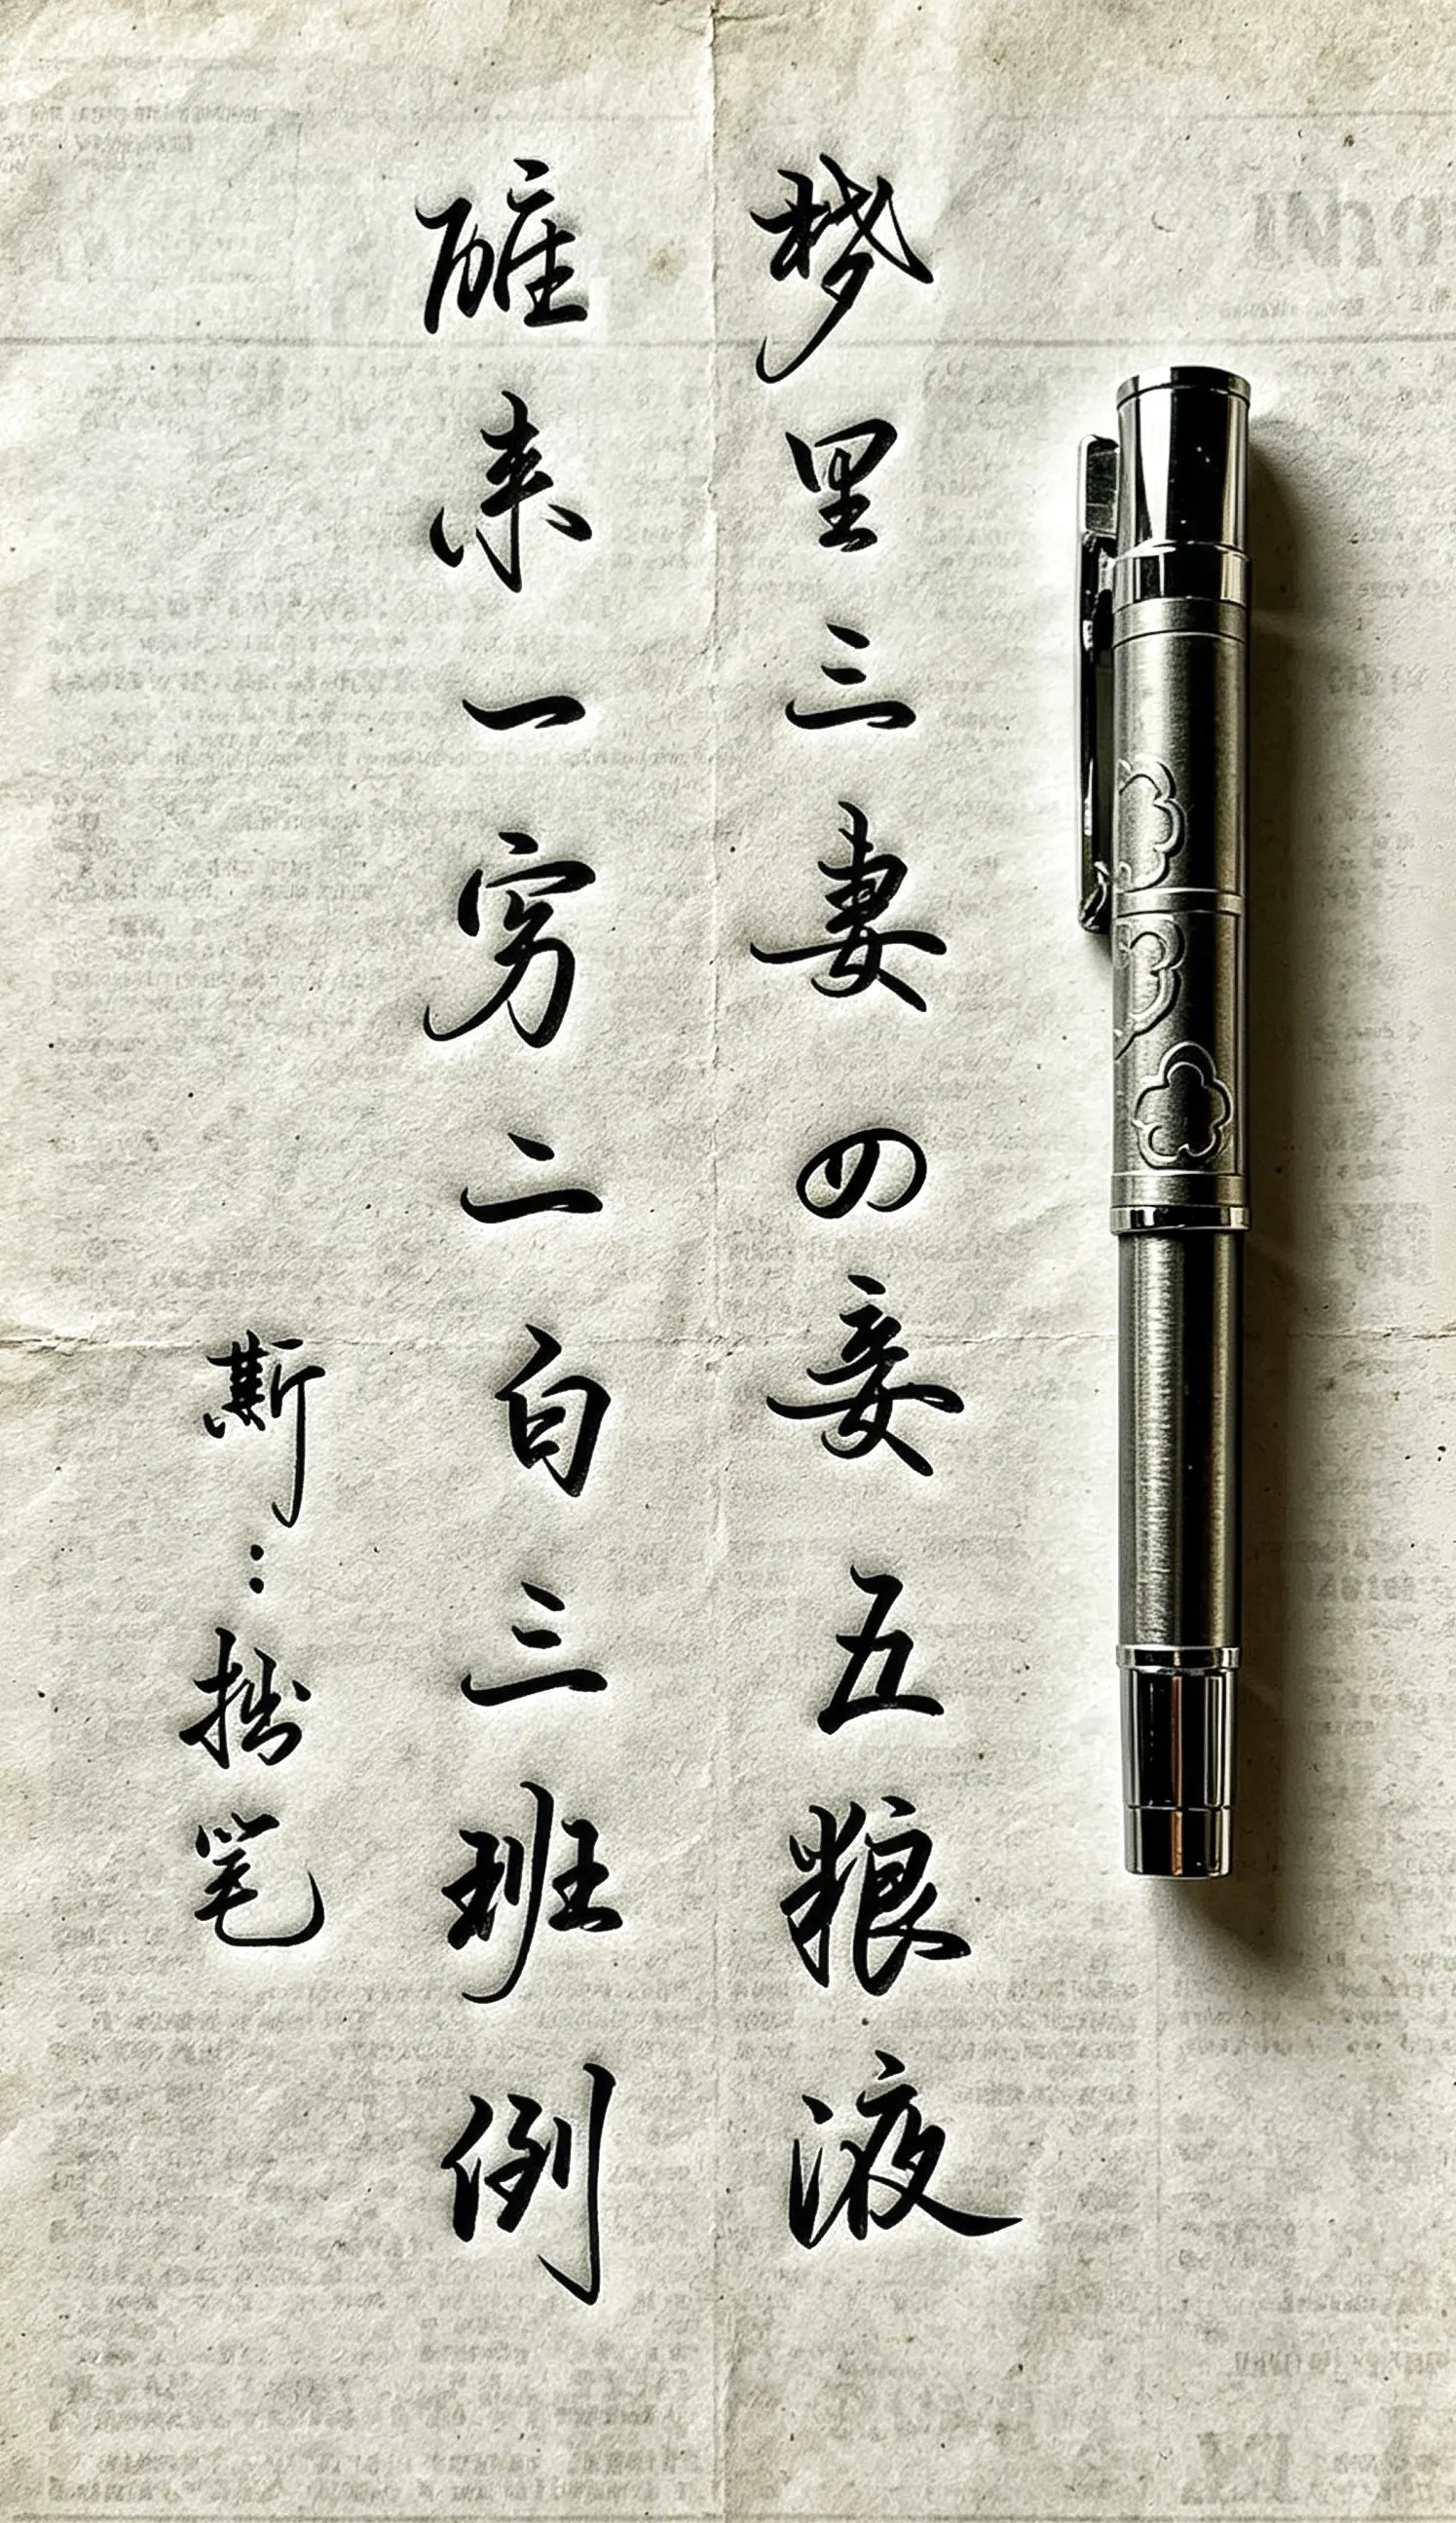 梦里三妻四妾五粮液
醒来一穷二白三班倒
斯：拙笔